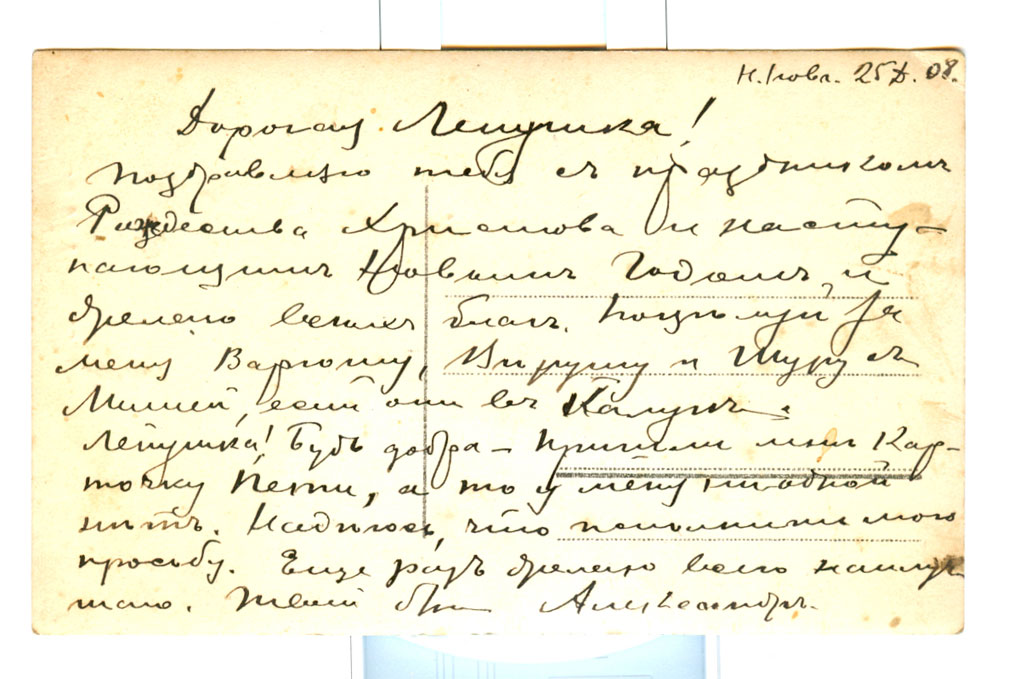 25 Д. 08.
Дорогая Лепушка!
Поздравляю тебя съ праздникомъ
Рождества Христова и насту-
пающимъ Новымъ Годомъ, и
желаю всякихъ благъ. Поцѣлуй за
меня Варюшу, Вѣрушу и Шуру съ
Мишей, если они въ Калугѣ.
Лепушка! Будь добра – пришли мнѣ кар-
точку Пети, а то у меня ни одной
нѣтъ. Надѣюсь, что исполнишь мою
просьбу. Еще разъ желаю всего наилуч-
шаго. Твой Александръ.